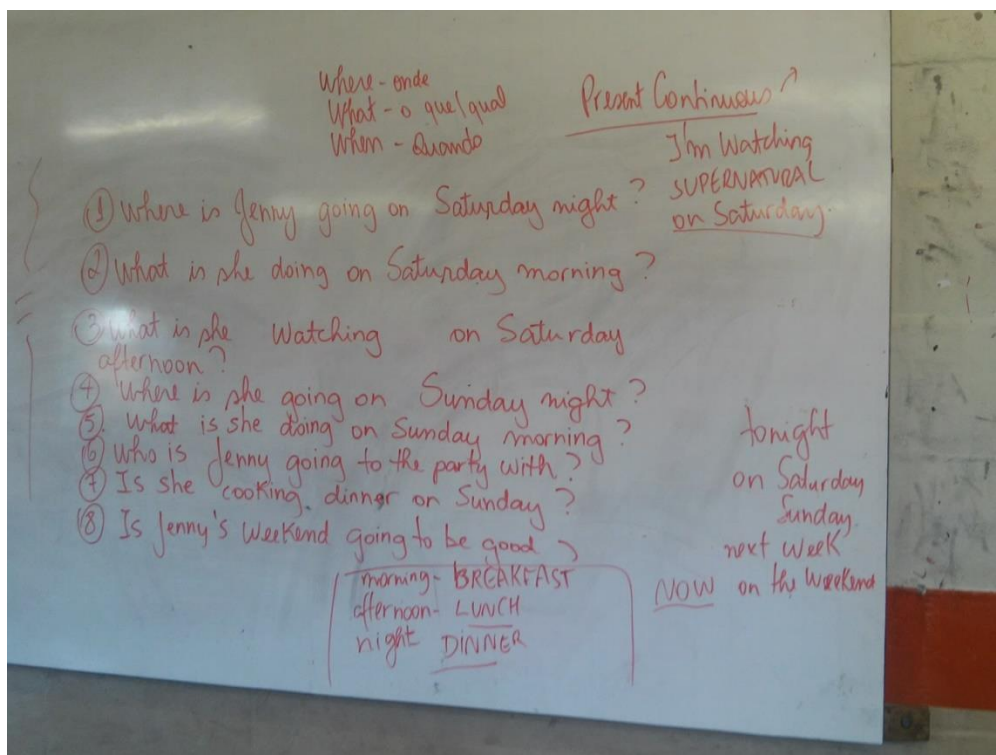 Where - onde
What - o que/qual
When - Quando
Present Continuous
I'm Watching
SUPERNATURAL
on Saturday.
① Where is Jenny going on Saturday night?
② What is she doing on Saturday morning?
③ What is she Watching on Saturday
afternoon?
④ Where is she going on Sunday night?
⑤ What is she doing on Sunday morning?
⑥ Who is Jenny going to the party with?
⑦ Is she cooking dinner on Sunday?
⑧ Is Jenny's Weekend going to be good?
morning - BREAKFAST
afternoon - LUNCH
night DINNER
tonight
on Saturday
Sunday
next Week
NOW on the Weekend